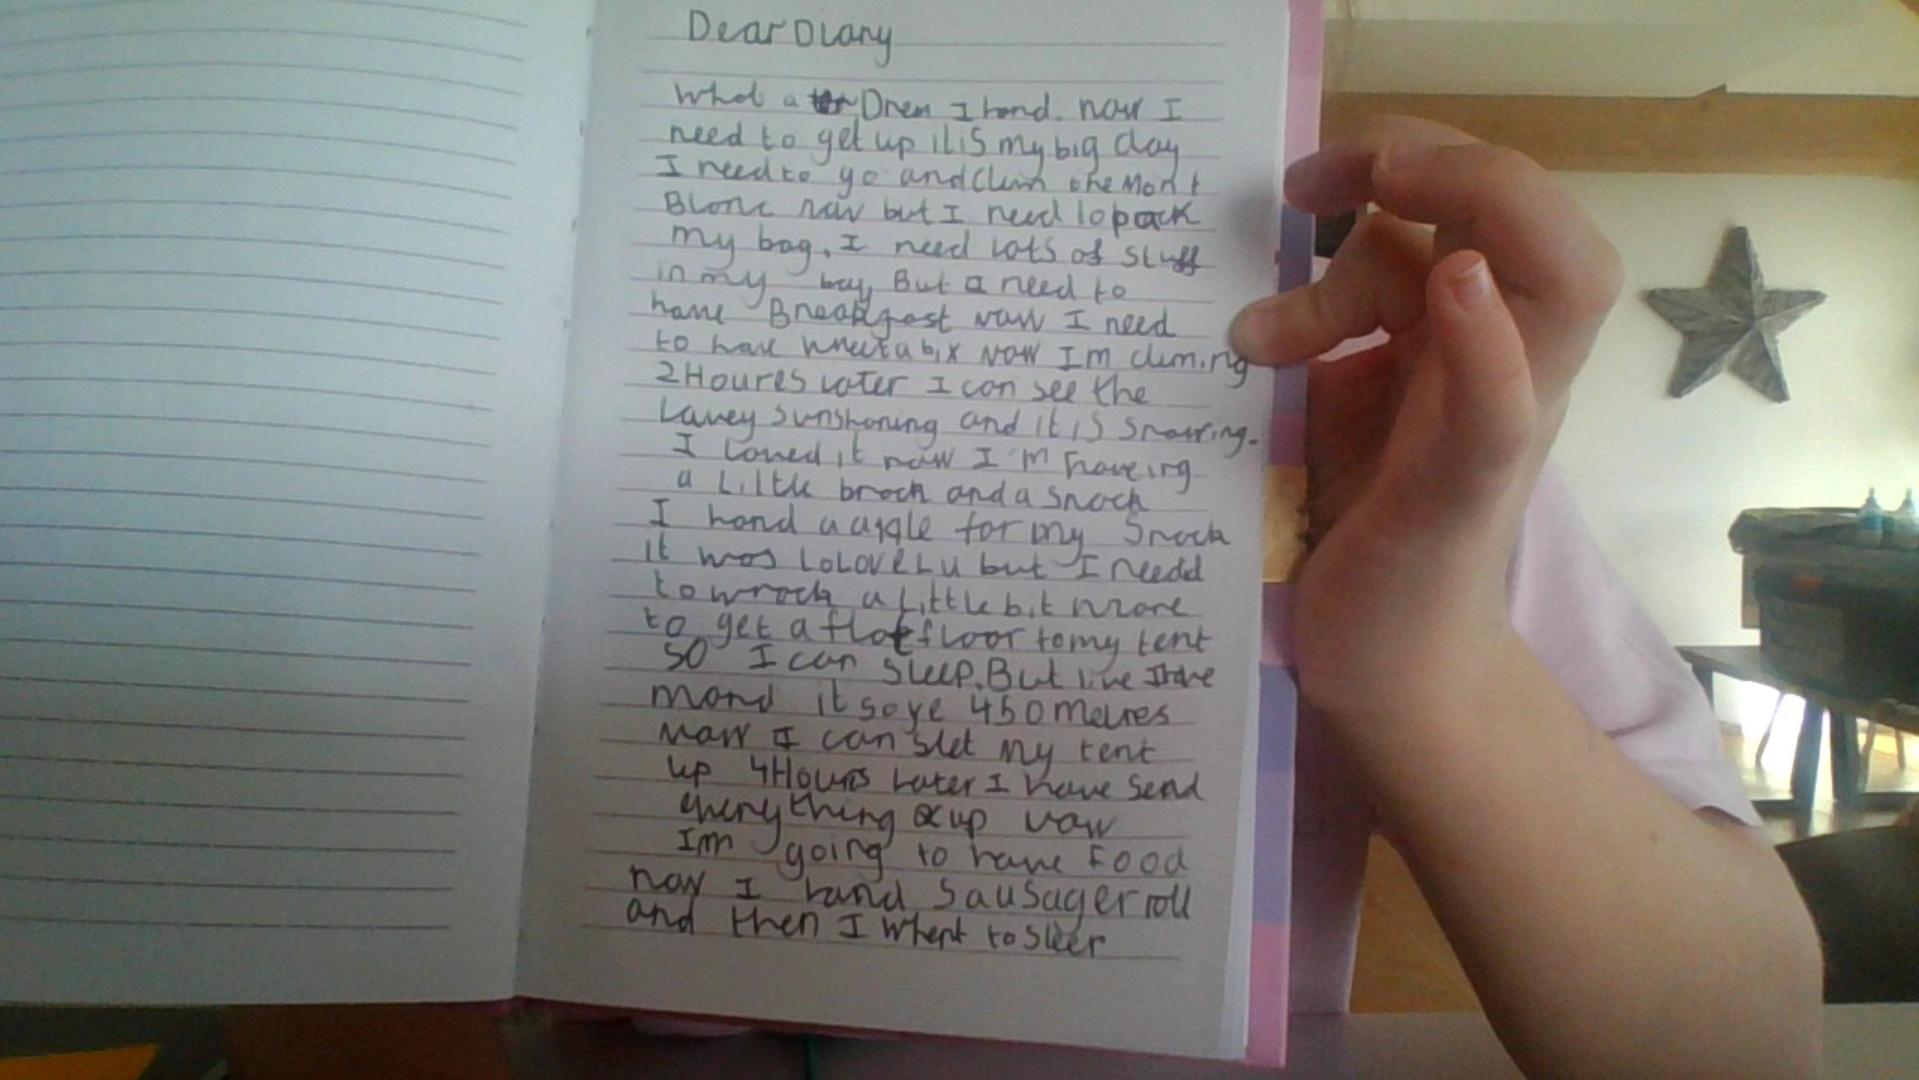 Dear Diary
What a Drem I hand. now I
need to get up it is my big day
I need to go and Clim the Mont
Blonc now but I need to pack
my bag. I need lots of stuff
in my bag, But I need to
have Breakfast now I need
to have weetabix Now I'm climing
2 Houres later I can see the
Lavey sunshoning and it is snowing.
I loved it now I'm haveing
a Little brack and a snack
I hand a apple for my Snack
it was loLoveLu but I needd
to wrock a little bit more
to get a flat floor to my tent
so I can sleep. But live I have
mand it soye 450 metres
Now I can stet my tent
up 4 Hours Later I have Send
everything up now
I'm going to have Food
now I hand Sausage roll
and then I Whent to Sleep